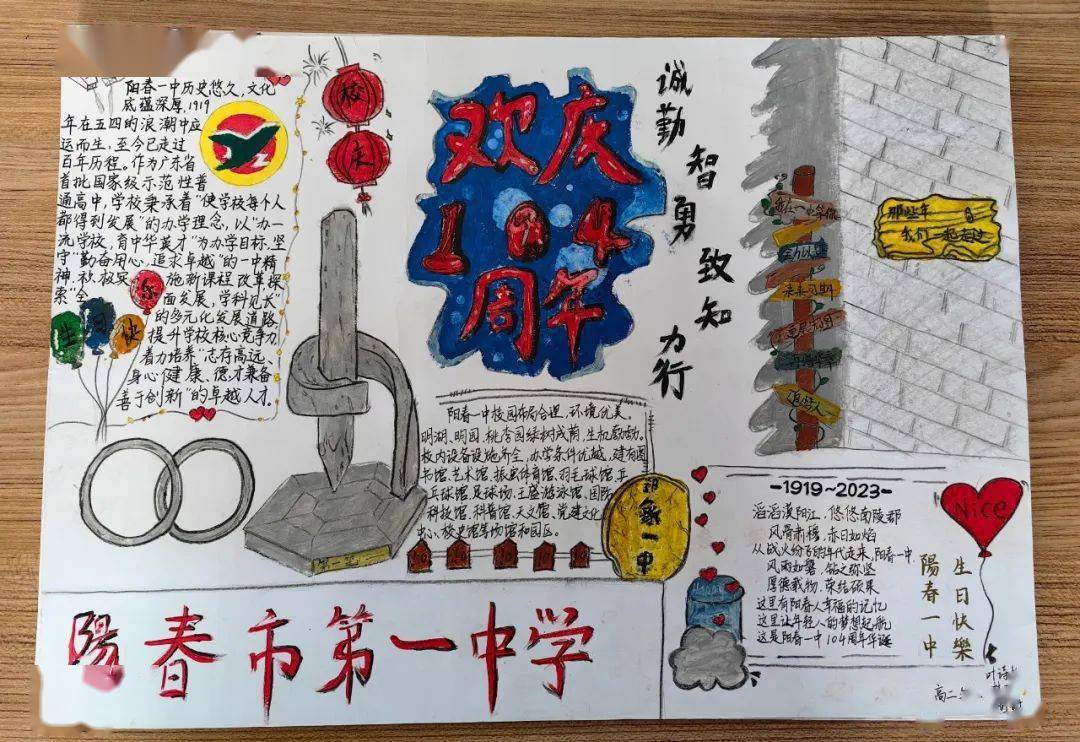 阳春一中历史悠久,文化
底蕴深厚,1919
年在五四的浪潮中应
运而生,至今已走过
百年历程。作为广东省
首批国家级示范性普
通高中,学校秉承着“使学校每个人
都得到发展”的办学理念,以“办一
流学校,育中华英才”为办学目标,坚
守“勤奋用心,追求卓越”的一中精
神,积极实施新课程改革探
索“全面发展,学科见长”
的多元化发展道路,
提升学校核心竞争力,
着力培养“志存高远、
身心健康、德才兼备
善于创新”的卓越人才.
生日快乐
校庆
欢庆
104
周年
诚勤
智勇
致知
力行
那些年
我们一起走过
阳春一中校园布局合理,环境优美。
明湖、明园、桃李园绿树成荫,生机勃勃。
校内设备设施齐全,办学条件优越,建有图
书馆、艺术馆、振宏体育馆、羽毛球馆、乒
乒球馆、足球场、王盛游泳馆、国防
科技馆、科普馆、天文馆、党建文化
中心、校史馆等场馆和园区。
第一笔
一中
-1919~2023-
滔滔漠阳江,悠悠南陵郡
风骨肃穆,赤日如焰
从战火纷飞的年代走来,阳春一中
风雨如磐,钻之弥坚
厚德载物,荣结硕果
这里有阳春人幸福的记忆
这里让年轻人的梦想起航
这是阳春一中104周年华诞
Nice
生日快樂
陽春一中
陽春市第一中学
叶诗
高二